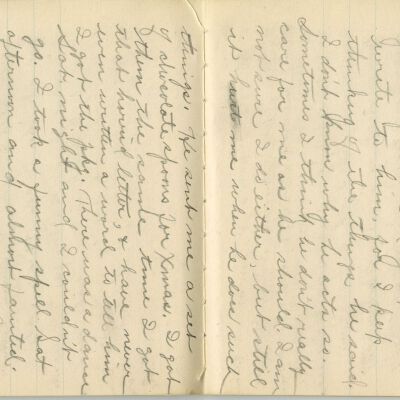 write to him, for I keep
thinking of the things he said.
I don't know why he acts so.
Sometimes I think he don't really
care for me as he should. I am
not sure I do either, but still
it hurts me when he does such
things. He sent me a set
of chocolate spoons for Xmas. I got
them the same time I got
that horrid letter, & have never
even written a word to tell him
I got the pkg. There was a dance
Sat. night and I couldn't
go. I took a funny spell Sat
afternoon and almost fainted.